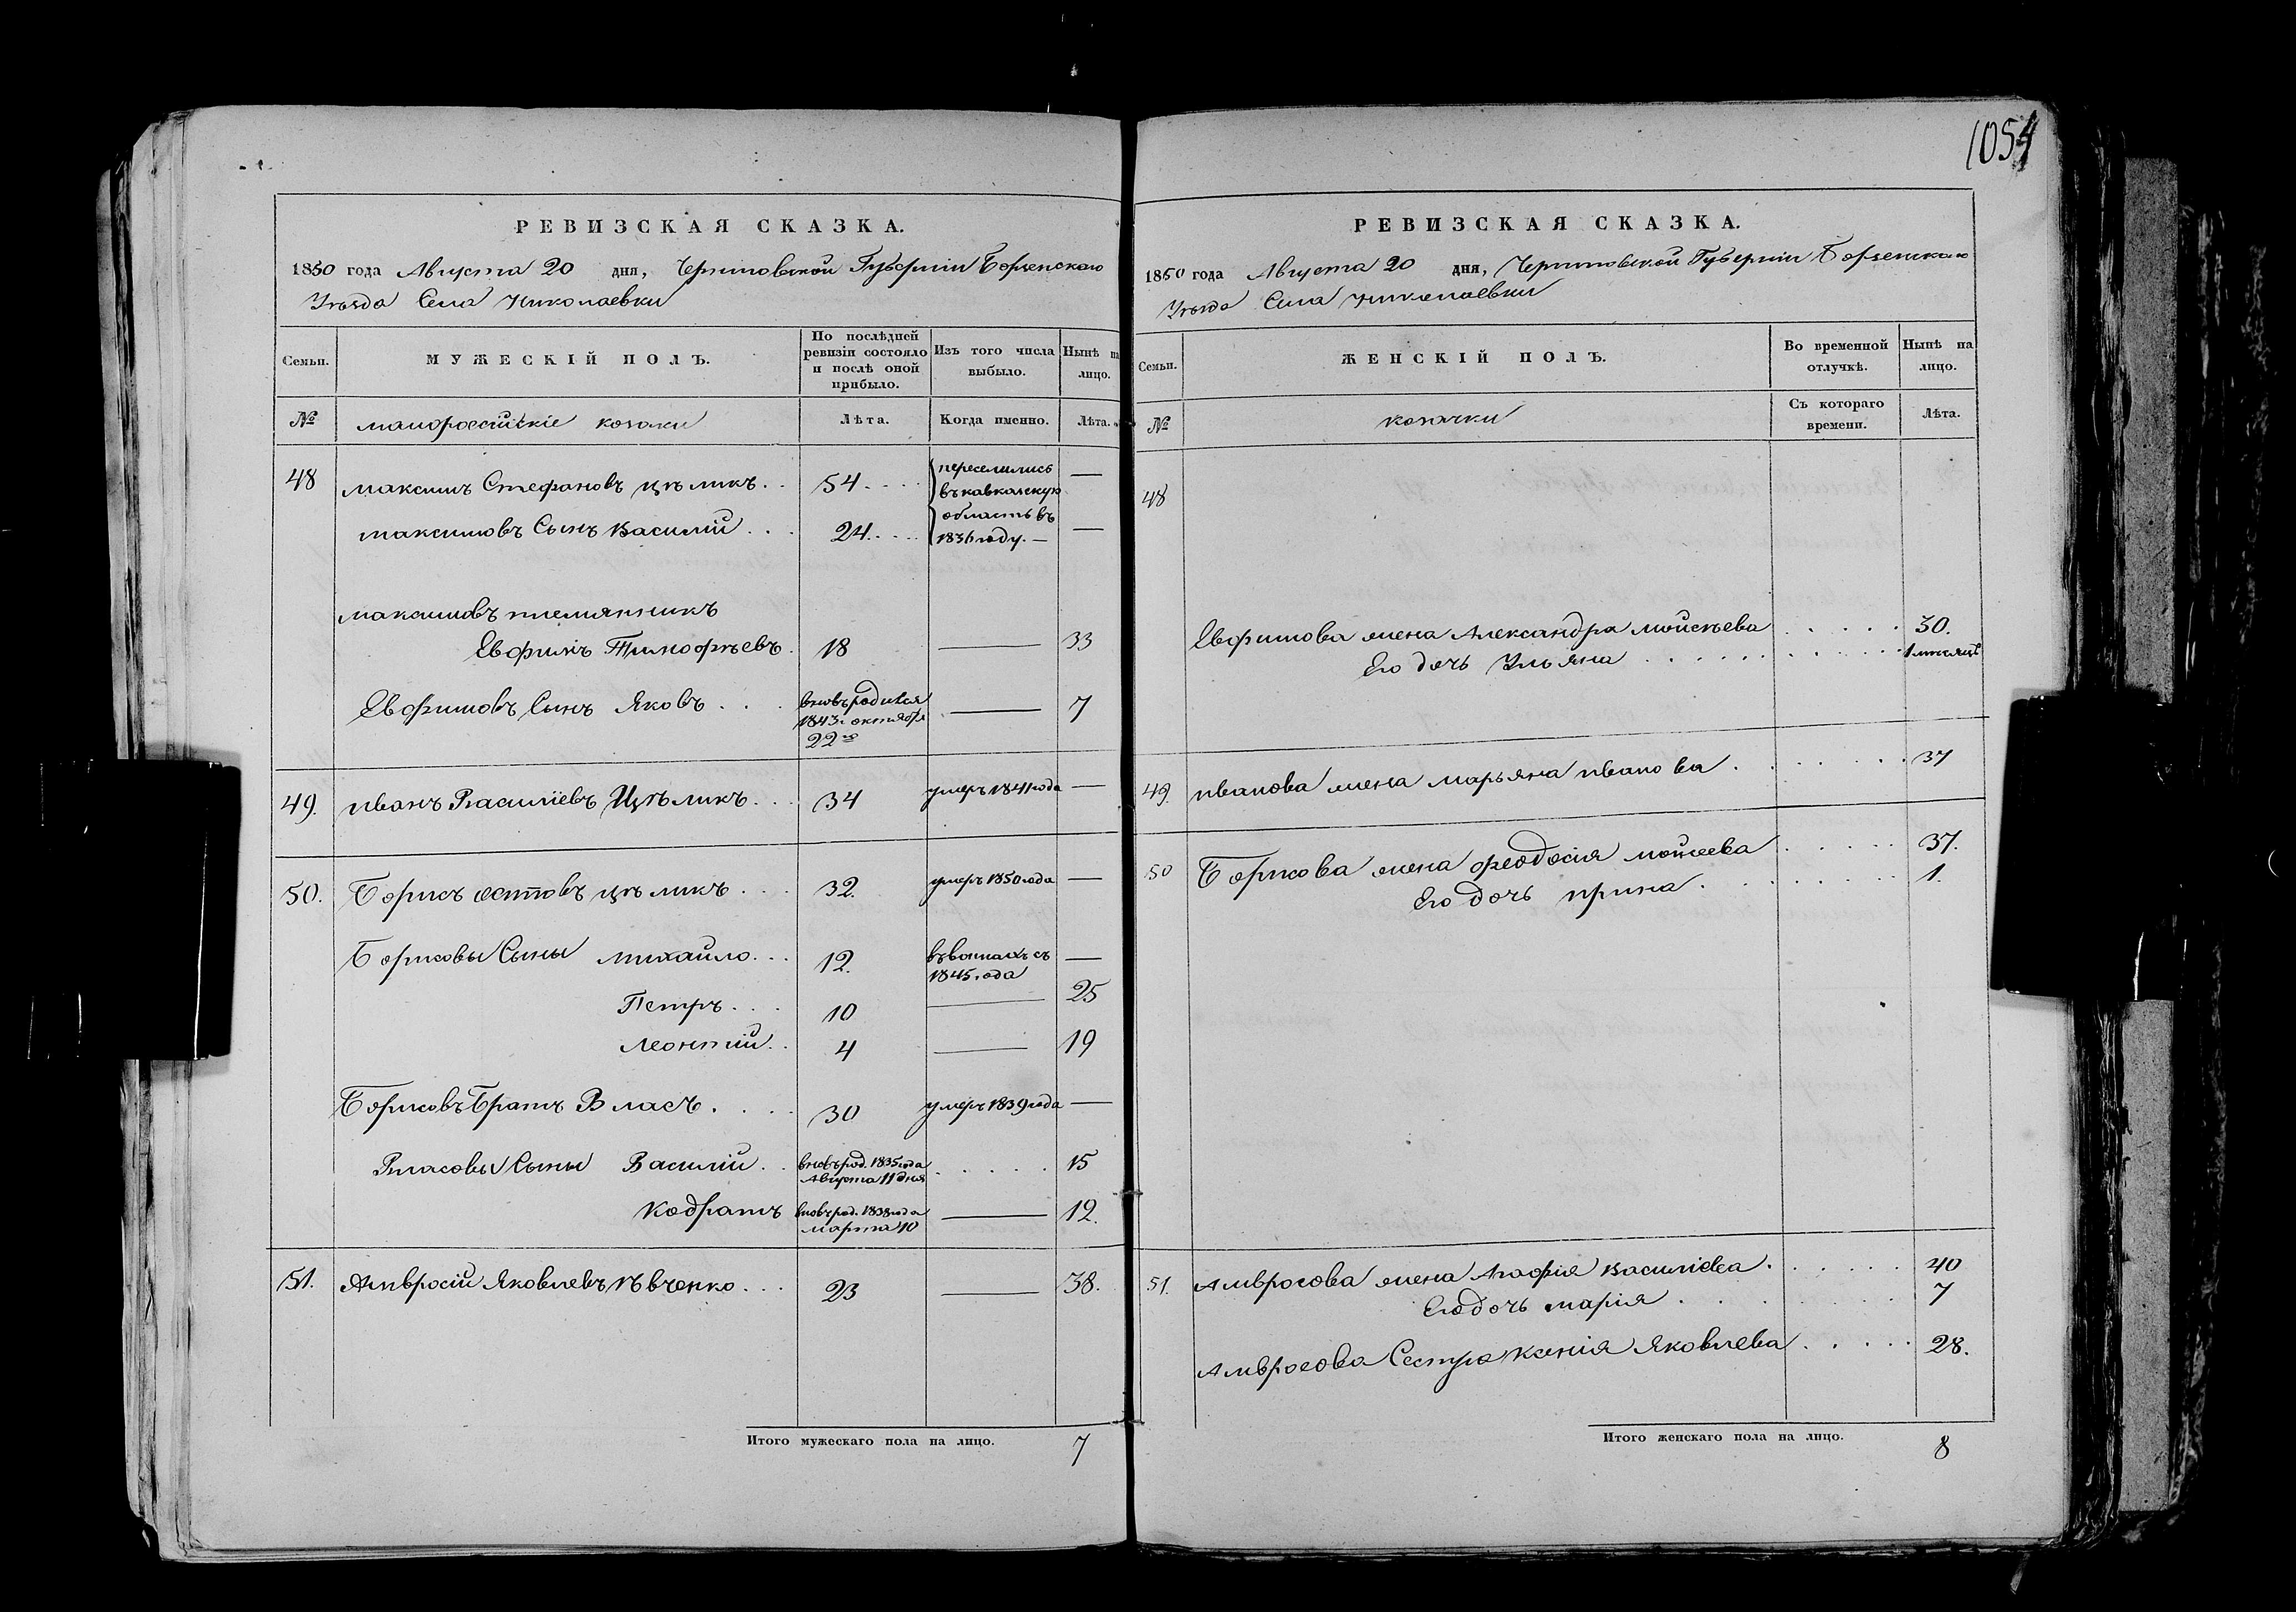 1054
РЕВИЗСКАЯ СКАЗКА.
1850 года Августа 20 дня, Черниговской Губерніи Борзенскаго
Уѣзда Села Николаевки
Семьи. МУЖЕСКІЙ ПОЛЪ. По послѣдней ревизіи состояло и послѣ оной прибыло. Изъ того числа выбыло. Нынѣ на лицо.
№ малороссійскіе козаки Лѣта. Когда именно. Лѣта.
48 Максимъ Стефановъ Цѣликъ 54 переселились —
въ кавказскую
Максимовъ Сынъ Василій 24 область въ —
1836 году. —
Максимовъ племянникъ
Евфимъ Тимофѣевъ 18 — 33
Евфимовъ Сынъ Яковъ вновь родился — 7
1843 г. октября
22го
49. Иванъ Василіевъ Цѣликъ 34 умеръ 1841 года —
50. Борисъ Цѣликъ 32. умеръ 1850 года —
Борисовы Сыны Михайло 12. съ —
1845 года
Петръ 10 — 25
Леонтій 4 — 19
Борисовъ Братъ Власъ 30 умеръ 1839 года —
Власовы Сыны Василій вновь род. 1835 года 15
Августа 11 дня
Кодратъ вновь род. 1838 года — 12.
марта 10
51. Амвросій Яковлевъ 23 — 38.
Итого мужескаго пола на лицо. 7
РЕВИЗСКАЯ СКАЗКА.
1850 года Августа 20 дня, Черниговской Губерніи Борзенскаго
Уѣзда Села Николаевки
Семьи. ЖЕНСКІЙ ПОЛЪ. Во временной отлучкѣ. Нынѣ на лицо.
№ козачки Съ котораго времени. Лѣта.
48
Евфимова жена Александра Мойсѣева 30.
Его дочь Ульяна 1 мѣсяцъ
49. Иванова жена Марьяна Иванова 37
50 Борисова жена Феодосія Мойсеева 37.
Его дочь Ирина 1.
51. Амвросова жена Агафія Василіева 40
Его дочь Марія 7
Амвросова Сестра Ксенія Яковлева 28.
Итого женскаго пола на лицо. 8